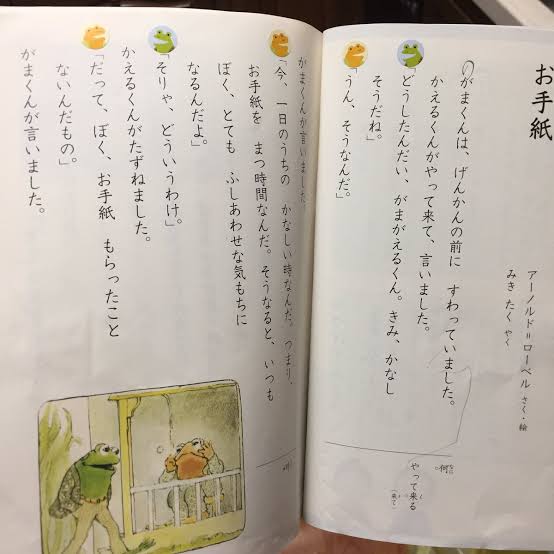 お手紙
アーノルド=ローベル さく・絵
みき たく やく
がまくんは、げんかんの前に すわっていました。
かえるくんがやって来て、言いました。
「どうしたんだい、がまがえるくん。きみ、かなし
そうだね。」
「うん、そうなんだ。」
何
やって来る
(来て)
がまくんが言いました。
「今、一日のうちの かなしい時なんだ。つまり、
お手紙を まつ時間なんだ。そうなると、いつも
ぼく、とても ふしあわせな気もちに
なるんだよ。」
「そりゃ、どういうわけ。」
かえるくんがたずねました。
「だって、ぼく、お手紙 もらったこと
ないんだもの。」
がまくんが言いました。